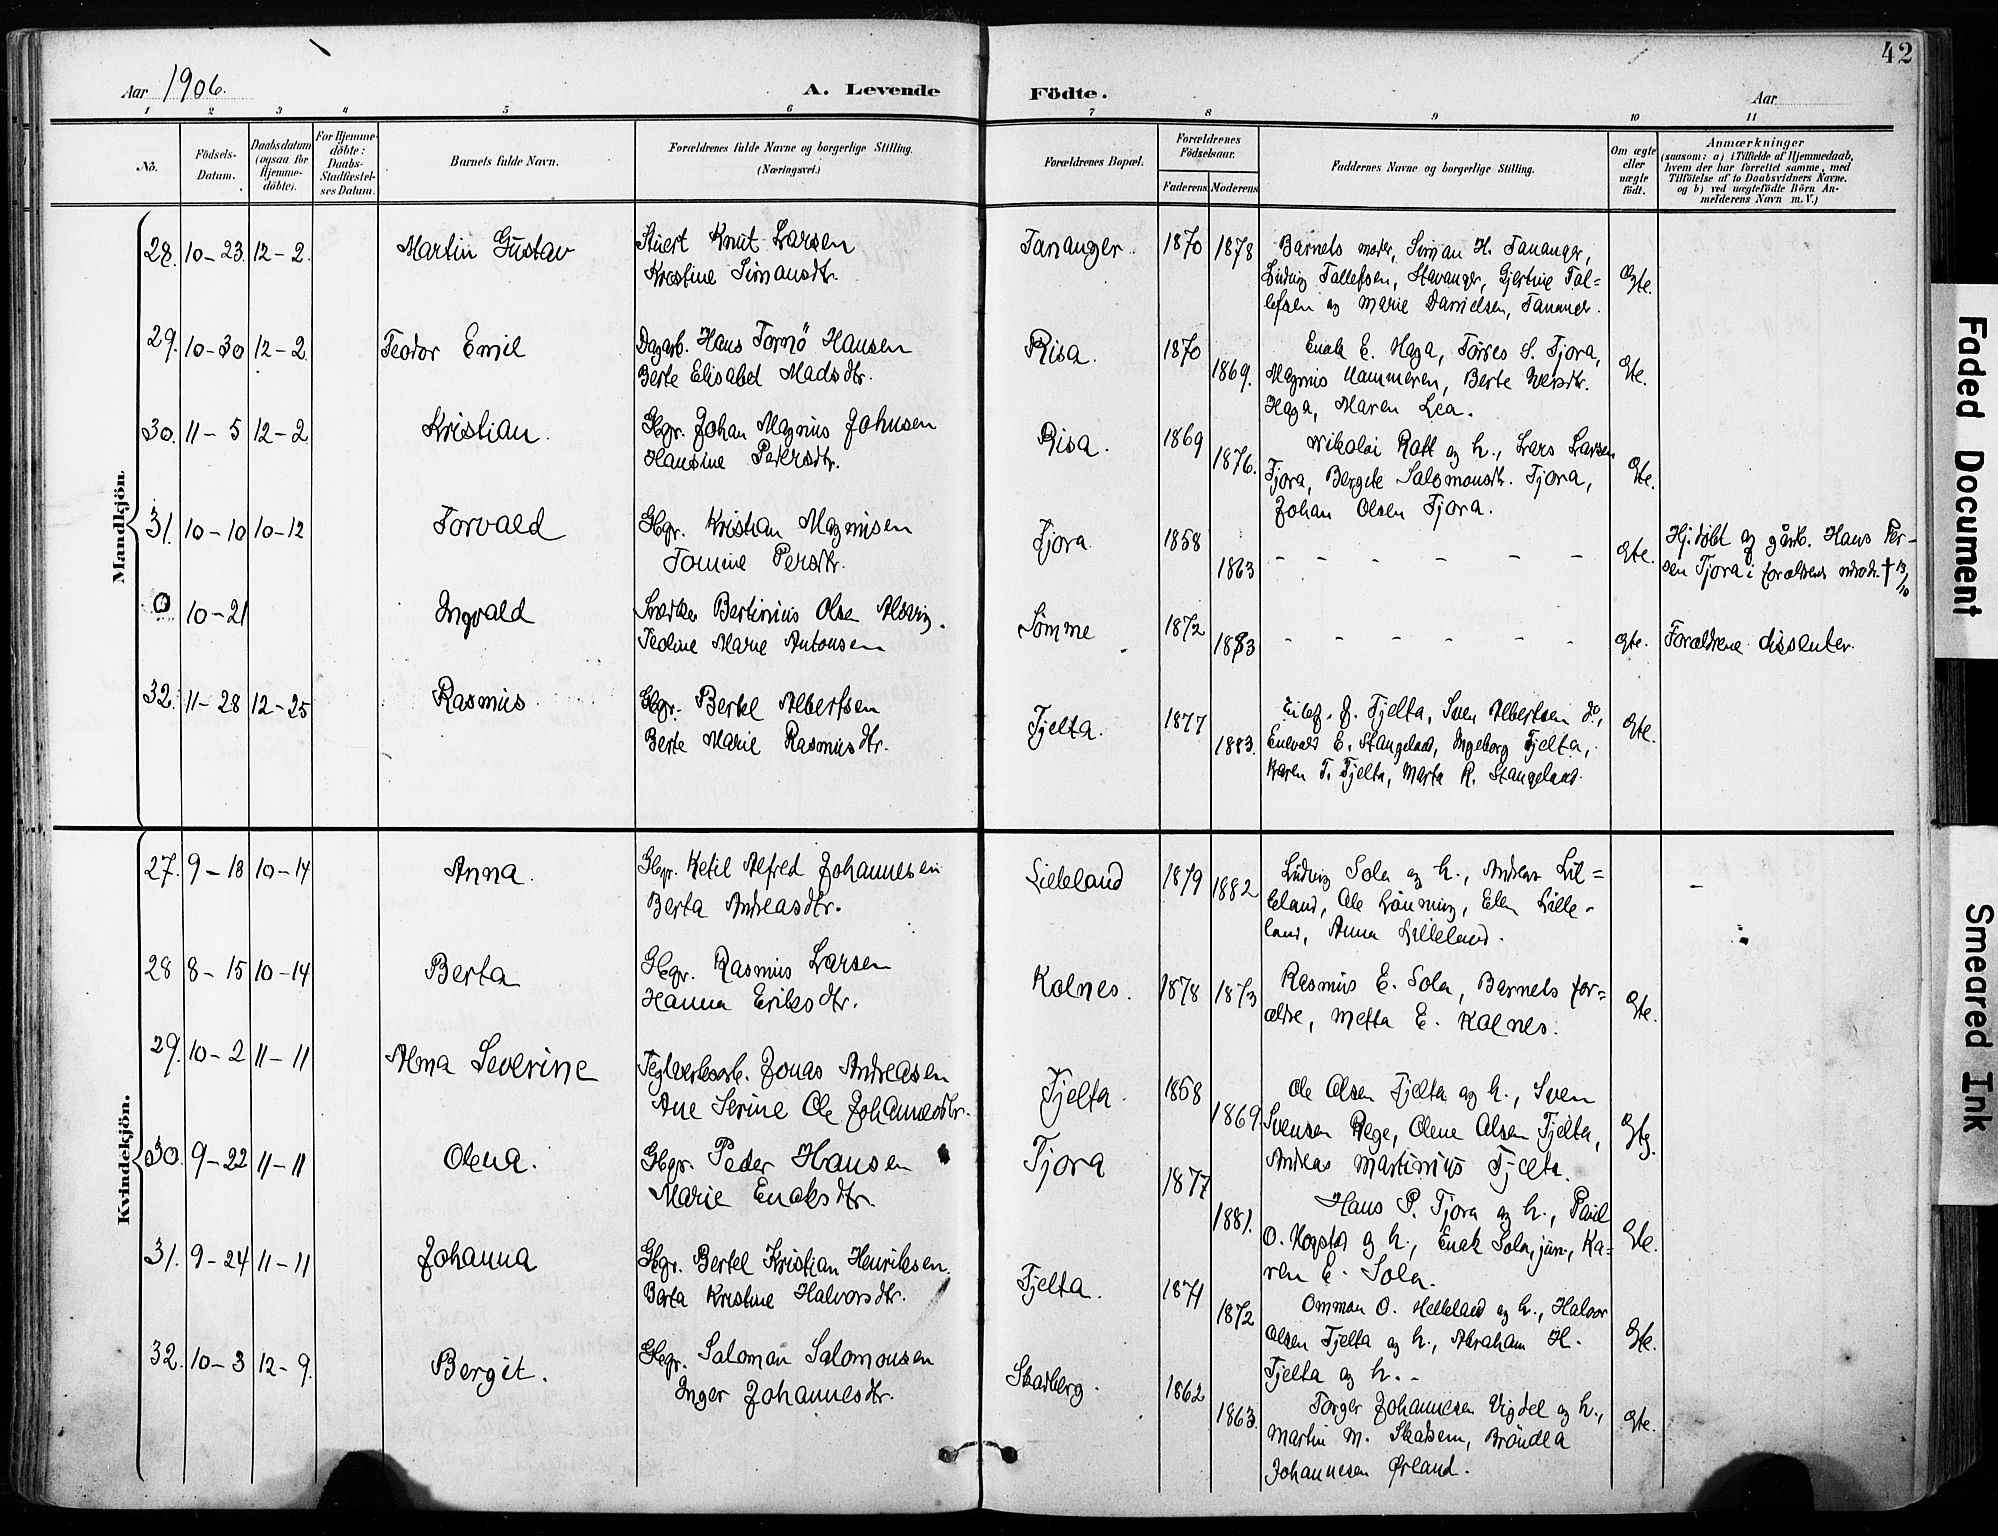 42
Aar 1906.
A. Levende Födte.
Aar
1 2 3 4 5 6 7 8 9 10 11
No.
Födsels-Datum.
Daabsdatum (ogsaa for Hjemme-döbte).
For Hjemme-döbte: Daabs-Stadfæstel-ses Datum.
Barnets fulde Navn.
Forældrenes fulde Navne og borgerlige Stilling.
(Næringsvei.)
Forældrenes Bopæl.
Forældrenes Födselsaar.
Faderens. Moderens.
Faddernes Navne og borgerlige Stilling.
Om ægte eller uægte födt.
Anmærkninger
(saasom: a) i Tilfælde af Hjemmedaab,
hvem der har forrettet samme, med
Tilföielse af to Daabsvidners Navne.
og b) ved uægtefödte Börn An-
melderens Navn m. V.)
Mandkjön.
28. 10-23 12-2. Martin Gustav
Stuert Knut Larsen
Kristine Simonsdtr.
Tananger. 1870 1878
Barnets moder, Simon H. Tananger,
Ludvig Tallefsen, Stavanger, Gjertine Tal=
lefsen og Marie Danielsen, Tananger.
Gte.
29. 10-30 12-2. Teodor Emil
Dagarb. Hans Tornö Hansen
Berte Elisabet Madsdtr.
Risa. 1870 1869.
Enok E. Haga, Törres S. Tjora,
Magnus Hammeren, Berte
Haga, Maren Lea.
Gte.
30. 11-5 12-2 Kristian.
Gbgr. Johan Magnus Johnsen
Hansine Pedersdtr.
Risa. 1869 1876.
Nikolai Rott og h., Lars Larsen
Tjora, Bergite Salomonsdtr. Tjora,
Johan Olsen Tjora.
Gte.
31. 10-10 10-12 Torvald
Gbgr. Kristian Magnusen
Tomine Persdtr.
Tjora 1858 1863
- - - - - -
Gte.
Hj. döbt af gårdb. Hans Per-
sen Tjora i forældrenes † 13/10
0 10-21 Ingvald
Bertinius Olsen
Teoline Marie Antonsen
Sömme 1872 1883
- - - - - -
Gte. Forældrene dissenter.
32. 11-28 12-25 Rasmus
Gbgr. Bertel Albertsen
Berte Marie Rasmusdtr.
Tjelta. 1877 1883.
Eilef J. Tjelta, Sven Albertsen do,
Enevald E. Stangeland, Ingeborg Tjelta,
Karen T. Tjelta, Marta R. Stangeland.
Gte.
Kvindekjön.
27. 9-18 10-14 Anna.
Gbgr. Ketil Alfred Johannesen
Berta Andreasdtr.
Lilleland 1879 1882
Ludvig Sola og h., Andreas Lil=
leland, Ole Lönning, Elen Lille-
land, Anna Lilleland.
28 8-15 10-14 Berta
Gbgr. Rasmus Larsen
Hanna Eriksdtr.
Kolnes. 1878 1873
Rasmus E. Sola, Barnets for=
ældre, Metta E. Kolnes.
Gte.
29. 10-2 11-11 Alma Severine
Teglverksarb. Jonas Andreasen
Ane Serine Ole Johannesdtr.
Tjelta. 1858 1869.
Ole Olsen Tjelta og h., Sven
Svensen Rege, Olene Olsen Tjelta,
Andreas Martinius Tjelta.
Gte.
30. 9-22 11-11 Olena.
Gbgr. Peder Hansen
Marie Enoksdtr.
Tjora 1877 1881.
Hans P. Tjora og h., Paul
O. Hogstad og h., Enok Sola, jun., Ka-
ren E. Sola.
Gte.
31. 9-24 11-11 Johanna
Gbgr. Bertel Kristian Henriksen.
Berta Kristine Halvorsdtr.
Tjelta. 1871 1872
Ommon O. Helleland og h., Halvor
Olsen Tjelta og h., Abraham H.
Tjelta og h.
Gte.
32. 10-3 12-9. Bergit.
Gbgr. Salomon Salomonsen
Inger Johannesdtr.
Skadberg. 1862 1863.
Torger Johannesen Vigdel og h.,
Martin M. Skadsem, Bröndla
Johannesen Örland.
Gte.
Faded Document
Smeared Ink